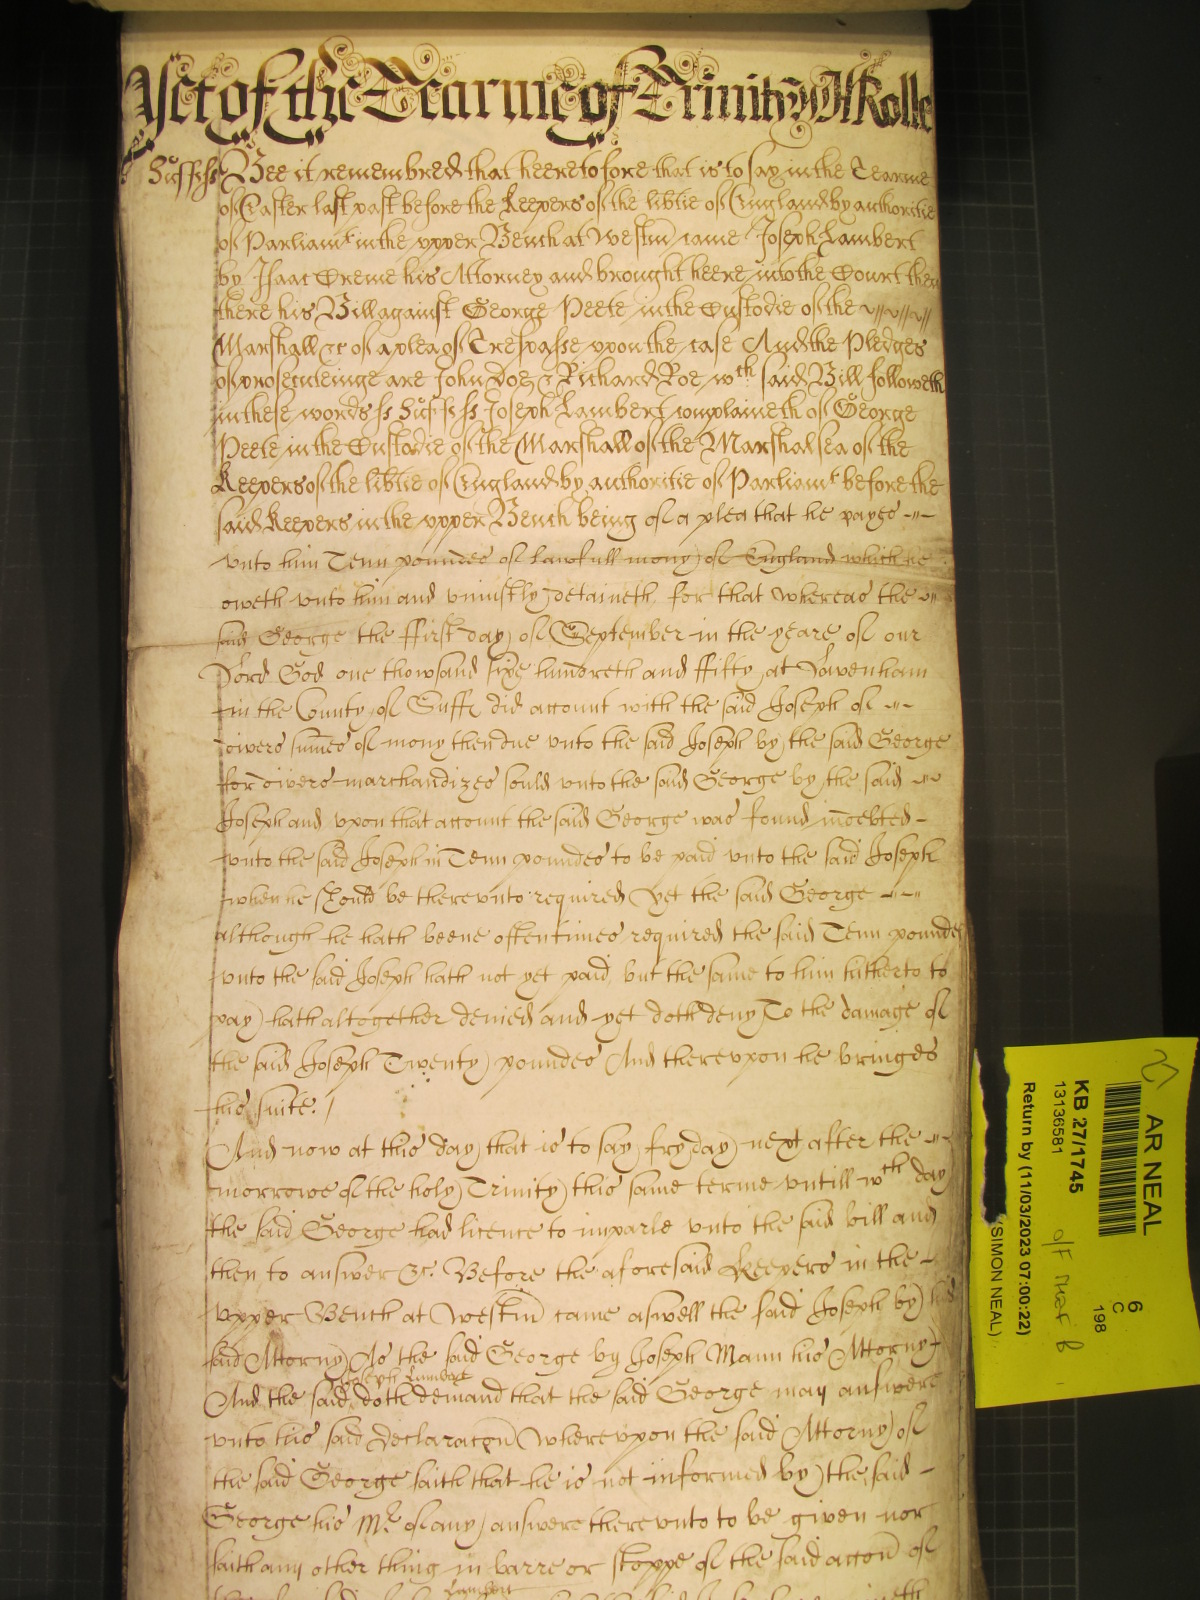 Yet of the Tearme of Trinity Wm Rolle
Suff ss Bee it remembred that heeretofore that is to say in the Tearme
of Easter last past before the Keepers of the libtie of England by authoritie
of Parliamt in the upper Bench at Westm came Joseph Lambert
by Isaac Creme his Attorney and brought heere into the Court then
there his Bill against George Peete in the Custodie of the
Marshall &c of a plea of Trespasse upon the case And the Pledges
of prosecuteinge are John Doe & Richard Roe wch said Bill followeth
in these words ss Suff ss Joseph Lambert complaineth of George
Peete in the Custodie of the Marshall of the Marshalsea of the
Keepers of the libtie of England by authoritie of Parliamt before the
said Keepers in the upper Bench being of a plea that he payes
unto him Tenn poundes of lawfull mony of England which he
oweth unto him and uniustly detaineth for that whereas the
said George the ffirst day of September in the yeare of our
Lord God one thowsand sixe hundreth and ffifty at Lavenham
in the County of Suff did account with the said Joseph of
divers sumes of mony then due unto the said Joseph by the said George
for divers marchandizes sould unto the said George by the said
Joseph and upon that account the said George was found indebted
unto the said Joseph in Tenn poundes to be paid unto the said Joseph
when he should be thereunto required Yet the said George
although he hath beene oftentimes required the said Tenn poundes
unto the said Joseph hath not yet paid but the same to him hitherto to
pay hath altogether denied and yet doth deny To the damage of
the said Joseph Twenty poundes And thereupon he bringes
his suite. /
And now at this day that is to say fryday next after the
morrowe of the holy Trinity this same terme untill wth day
the said George had licence to imparle unto the said bill and
then to answer &c. Before the aforesaid Keepers in the
upper Bench at Westm came aswell the said Joseph by his
said Attorny As the said George by Joseph Mann his Attorny
Joseph Lambert
And the said doth demand that the said George may answere
unto his said declaracon Whereupon the said Attorny of
the said George saith that he is not informed by the said
George his Mr of any answere thereunto to be given nor
saith any other thing in barre or stoppe of the said accon of
Lambert
AR NEAL
6
C
198
KB 27/1745
13136581
Return by (11/03/2023 07:00:22)
(SIMON NEAL)